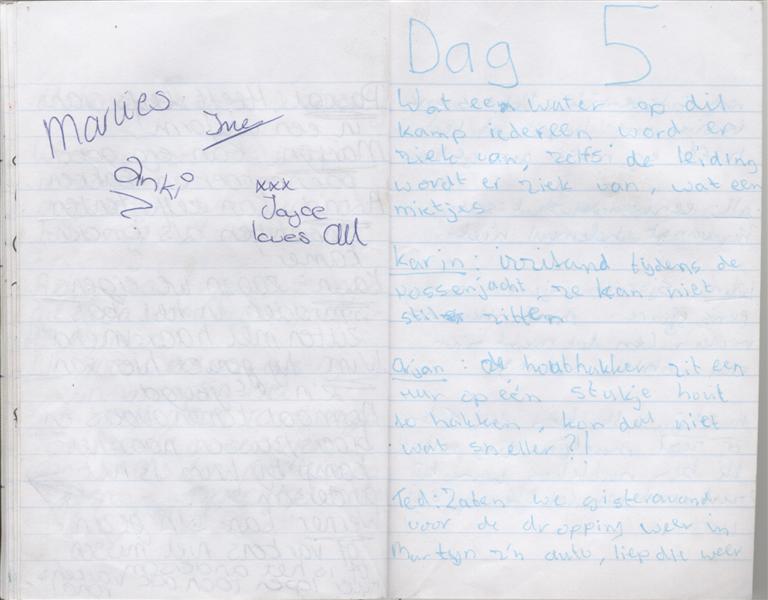 Marlies
Anki
xxx
Joyce
loves All
Dag 5
Wat een water op dit
kamp iedereen word er
ziek van, zelfs de leiding
wordt er ziek van, wat een
mietjes
Karin: irritand tijdens de
vossenjacht, ze kan niet
stil zitten
Orjan: de houthakker zit een
uur op één stukje hout
te hakken, kon dat niet
wat sneller?!
Ted: Zaten we gisteravond
voor de dropping weer in
Martijn z'n auto, liep die weer